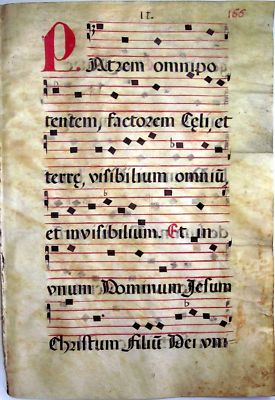 II. 166
PAtrem omnipo
tentem, factorem Cęli, et
terrę, visibilium omniũ
et invisibilium. Et in
vnum Dominum Jesum
Christum Filiũ Dei vni